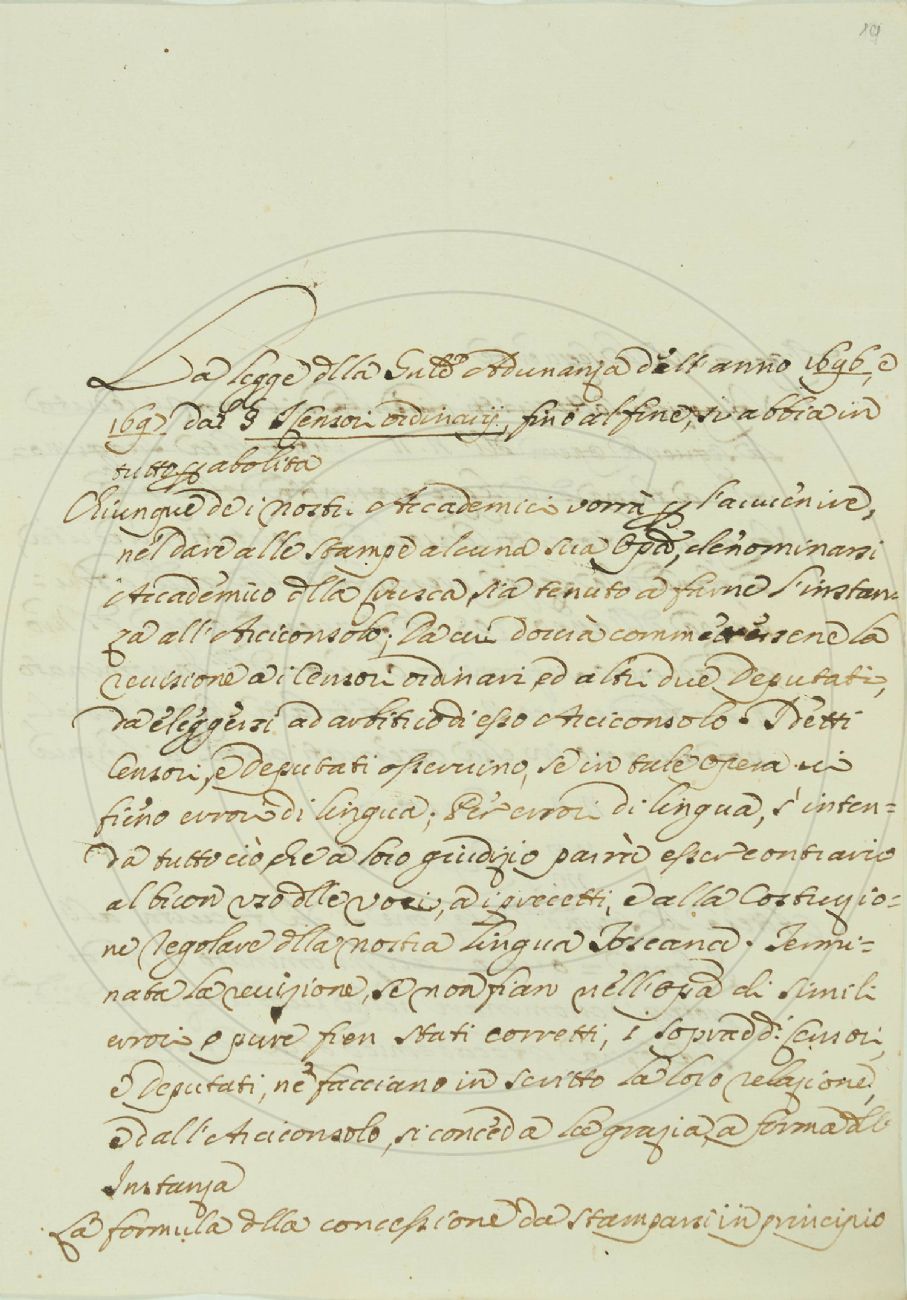 19
La legge dlla Sudᵈᵃ Adunanza dell'anno 1696, e
1697 dal § I Censori ordinarij, fino al fine, si abbia in
tutto p abolita
Chiunque de i nostri Accademici vorrà p l'avvenire,
nel dare alle stampe alcuna sua Opã, denominarsi
Accademico dlla Crusca, sia tenuto a farne l'instan=
za all'Arciconsolo; Da cui dovrà commettersene la
revisione a i Censori ordinari, ed altri due Deputati,
da eleggersi ad arbitrio di esso Arciconsolo. Detti
Censori, e Deputati osservino, se in tale opera vi
sieno errori di lingua; Per errori di lingua, s'inten=
da tutto ciò che a loro giudizio parrà esser contrario
al buon uso dlle voci, a i precetti, e alla Costruzio=
ne regolare dlla nostra Lingua Toscana. Termi=
nata la revisione, se non sian nell'Opã di simili
errori o pure sien stati corretti, i sopraddⁱ Censori,
e Deputati, ne facciano in scritto la loro relazione,
e dall'Arciconsolo, si conceda la grazia, a forma dll
Instanza
La formula dlla concessione da stamparsi in principio